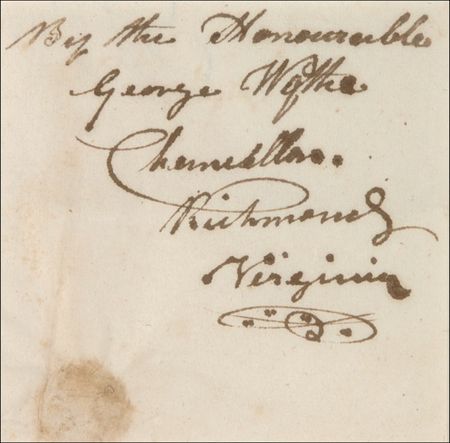 By the Honourable
George Wythe
Chancellor.
Richmond
Virginia